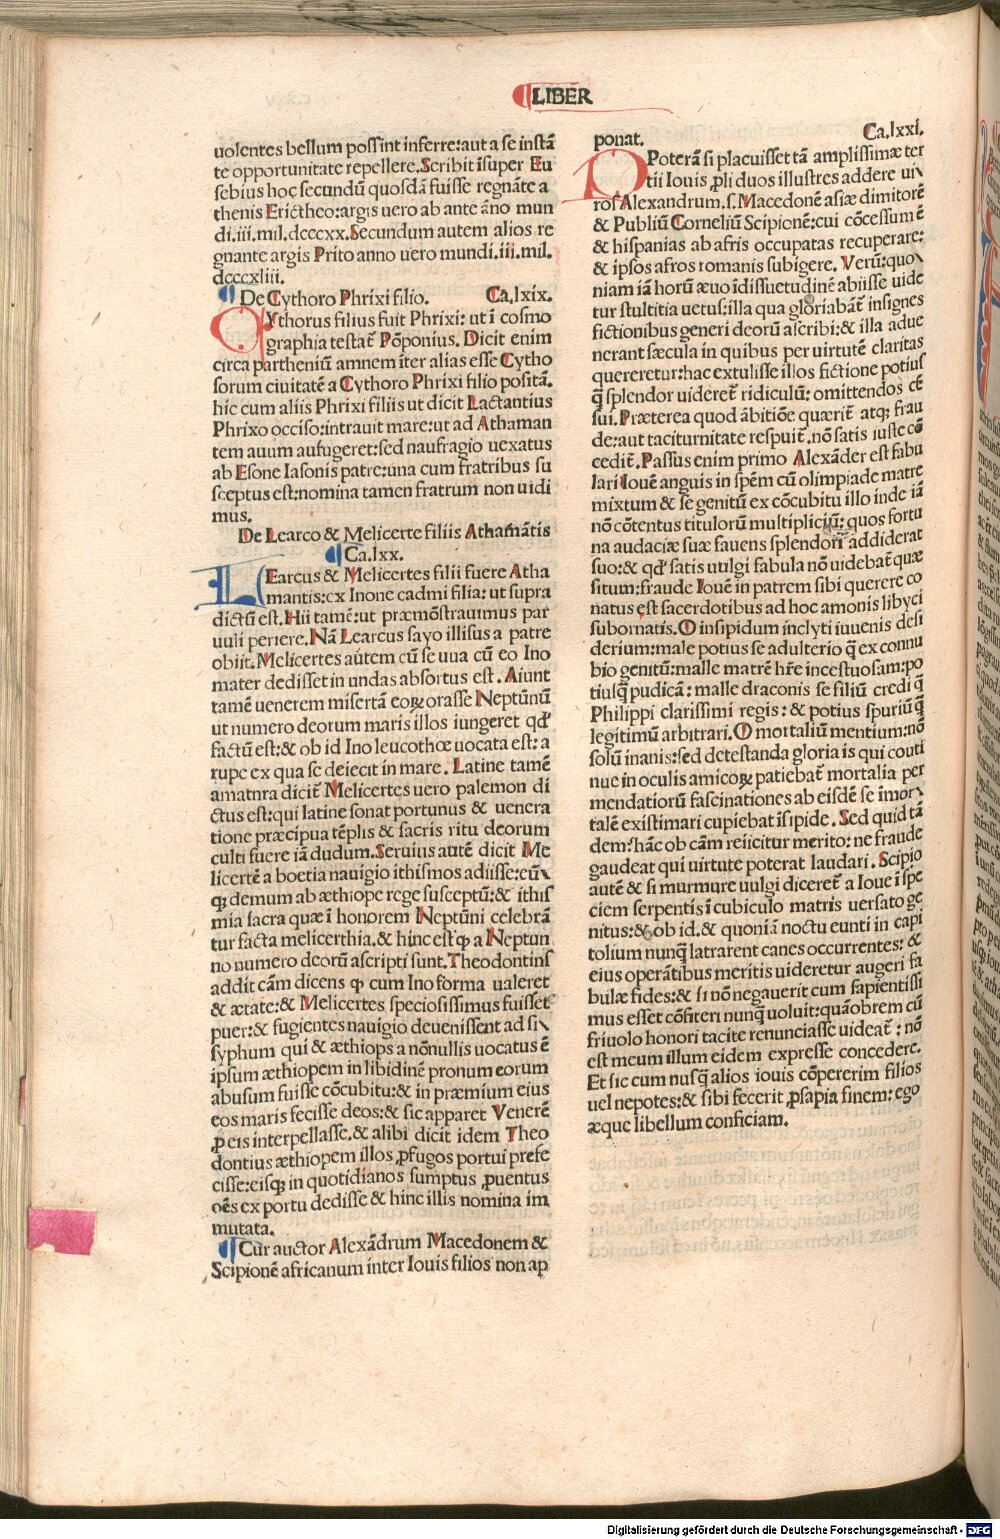 LIBER
uolentes bellum possint inferre: aut a se instā
te opportunitate repellere. Scribit īsuper Eu
sebius hoc secundū quosdā fuisse regnāte a
thenis Ericttheo: argis uero ab ante āno mun
di.iii.mil.dcccxx. Secundum autem alios re
gnante argis Prito anno uero mundi.iii.mil.
dcccxliii.
De Cythoro Phrixi filio. Ca.lxix.
CYthorus filius fuit Phrixi: ut ī cosmo
graphia testat̄ Pōponius. Dicit enim
circa partheniū amnem īter alias esse Cytho
sorum ciuitatē a Cythoro Phrixi filio positā.
hic cum aliis Phrixi filiis ut dicit Lactantius
Phrixo occiso: intrauit mare: ut ad Athaman
tem auum aufugeret: sed naufragio uexatus
ab Esone Iasonis patre: una cum fratribus su
sceptus est: nomina tamen fratrum non uidi
mus.
De Learco & Melicerte filiis Athamātis
Ca.lxx.
LEarcus & Melicertes filii fuere Atha
mantis: ex Inone cadmi filia: ut supra
dictū est. Hii tamē: ut præmōstrauimus par
uuli periere. Nā Learcus saxo illisus a patre
obiit. Melicertes autem cū se una cū eo Ino
mater dedisset in undas absortus est. Aiunt
tamē uenerem misertā eoꝝ orasse Neptūnū
ut numero deorum maris illos iungeret qd'
factū est: & ob id Ino leucothoe uocata est: a
rupe ex qua se deiecit in mare. Latine tamē
amatnra dicit̄ Melicertes uero palemon di
ctus est: qui latine sonat portunus & uenera
tione præcipua tēplis & sacris ritu deorum
culti fuere iā dudum. Seruius autē dicit Me
licertē a boetia nauigio ithismos adiisse: eū
qꝫ demum ab æthiope rege susceptū: & ithis
mia sacra quæ ī honorem Neptūni celebrā
tur facta melicerthia. & hinc est ꝙ a Neptun
no numero deorū ascripti sunt. Theodontius
addit cām dicens ꝙ cum Ino forma ualeret
& ætate: & Melicertes speciosissimus fuisset
puer: & fugientes nauigio deuenissent ad si
syphum qui & æthiops a nōnullis uocatus ē
ipsum æthiopem in libidinē pronum eorum
abusum fuisse cōcubitu: & in præmium eius
eos maris fecisse deos: & sic apparet Venerē
ꝓ eis interpellasse. & alibi dicit idem Theo
dontius æthiopem illos ꝓfugos portui prefe
cisse: eisqꝫ in quotidianos sumptus ꝓuentus
oēs ex portu dedisse & hinc illis nomina im
mutata.
Cur auctor Alexādrum Macedonem &
Scipionē africanum inter Iouis filios non ap
ponat. Ca.lxxi.
POterā si placuisset tā amplissimæ ter
tii Iouis ꝓli duos illustres addere ui
ros Alexandrum.s. Macedonē asiæ dimitorē
& Publiū Corneliū Scipionē: cui cōcessum ē
& hispanias ab afris occupatas recuperare:
& ipsos afros romanis subigere. Verū: quo
niam iā horū æuo īdissuetudinē abiisse uide
tur stultitia uetus: illa qua gloriabāt̄ insignes
fictionibus generi deorū ascribi: & illa adue
nerant sæcula in quibus per uirtutē claritas
quereretur: hac extulisse illos fictione potius
q̄ splendor uideret̄ ridiculū: omittendos cē
sui. Præterea quod ābitiōe quærit̄ atqꝫ frau
de: aut taciturnitate respuit̄. nō satis iuste cō
cedit̄. Passus enim primo Alexāder est fabu
lari Iouē anguis in spēm cū olimpiade matre
mixtum & se genitū ex cōcubitu illo inde iā
nō cōtentus titulorū multipliciū: quos fortu
na audaciæ suæ fauens splendori addiderat
suo: & qd' satis uulgi fabula nō uidebat̄ quæ
situm: fraude Iouē in patrem sibi querere co
natus est sacerdotibus ad hoc amonis libyci
subornatis. O insipidum inclyti iuuenis desi
derium: male potius se adulterio q̄ ex connu
bio genitū: malle matrē hr̄e incestuosam: po
tiusq̄ pudicā: malle draconis se filiū credi q̄
Philippi clarissimi regis: & potius spuriū q̄
legitimū arbitrari. O mortaliū mentium: nō
solū inanis: sed detestanda gloria is qui couti
nue in oculis amicoꝝ patiebat̄ mortalia per
mendatiorū fascinationes ab eisdē se īmor
talē existimari cupiebat īsipide. Sed quid tā
dem? hāc ob cām reiicitur merito: ne fraude
gaudeat qui uirtute poterat laudari. Scipio
autē & si murmure uulgi diceret̄ a Ioue ī spe
ciem serpentis ī cubiculo matris uersato ge
nitus: & ob id. & quoniā noctu eunti in capi
tolium nunq̄ latrarent canes occurrentes: &
eius operātibus meritis uideretur augeri fa
bulæ fides: & si nō negauerit cum sapientissi
mus esset cōfiteri nunq̄ uoluit: quāobrem cū
friuolo honori tacite renunciasse uideat̄: nō
est meum illum eidem expresse concedere.
Et sic cum nusq̄ alios iouis cōpererim filios
uel nepotes: & sibi fecerit ꝓsapia finem: ego
æque libellum conficiam.
Digitalisierung gefördert durch die Deutsche Forschungsgemeinschaft - DFG